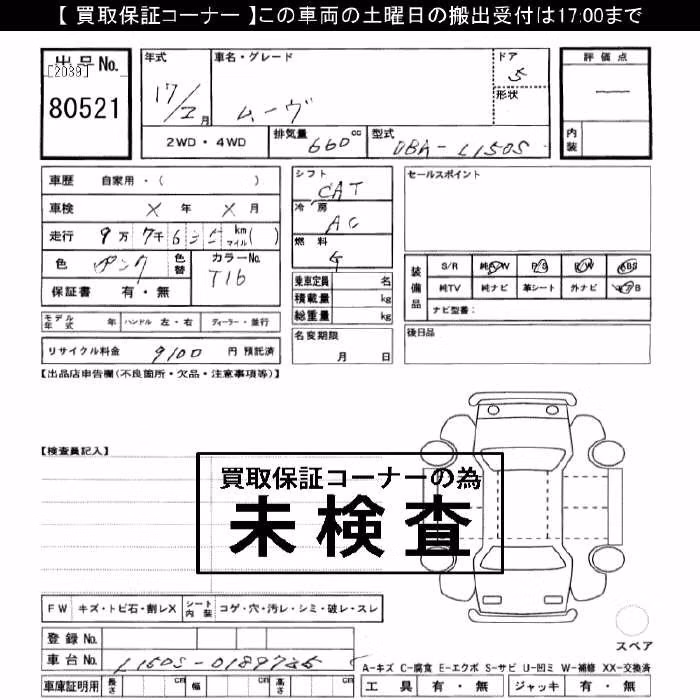 【 買取保証コーナー 】この車両の土曜日の搬出受付は17:00まで
出品No.
[2039]
80521
年式
17/2月
車名・グレード
ムーヴ
ドア
5
形状
評価点
内装
2WD・4WD
排気量 660 cc
型式 DBA-L150S
車歴 自家用・( )
車検 X 年 X 月
走行 9万7千6 km マイル( )
色 ピンク
色替
カラーNo. T16
保証書 有・無
シフト CAT
冷房 AC
燃料 G
乗車定員 名
積載量 kg
総重量 kg
名変期限 月 日
セールスポイント
装備品
S/R 純A/W P/S P/W ABS
純TV 純ナビ 革シート 外ナビ
ナビ型番:
後日品
モデル年式 年 ハンドル 左・右 ディーラー・並行
リサイクル料金 9100 円 預託済
【出品店申告欄(不良箇所・欠品・注意事項等)】
【検査員記入】
買取保証コーナーの為
未検査
FW キズ・トビ石・割レX シート内装 コゲ・穴・汚レ・シミ・破レ・スレ
スペア
登録No.
車台No.
A-キズ C-腐食 E-エクボ S-サビ U-凹ミ W-補修 XX-交換済
車庫証明用 長さ cm 幅 cm 高さ cm
工具 有・無 ジャッキ 有・無